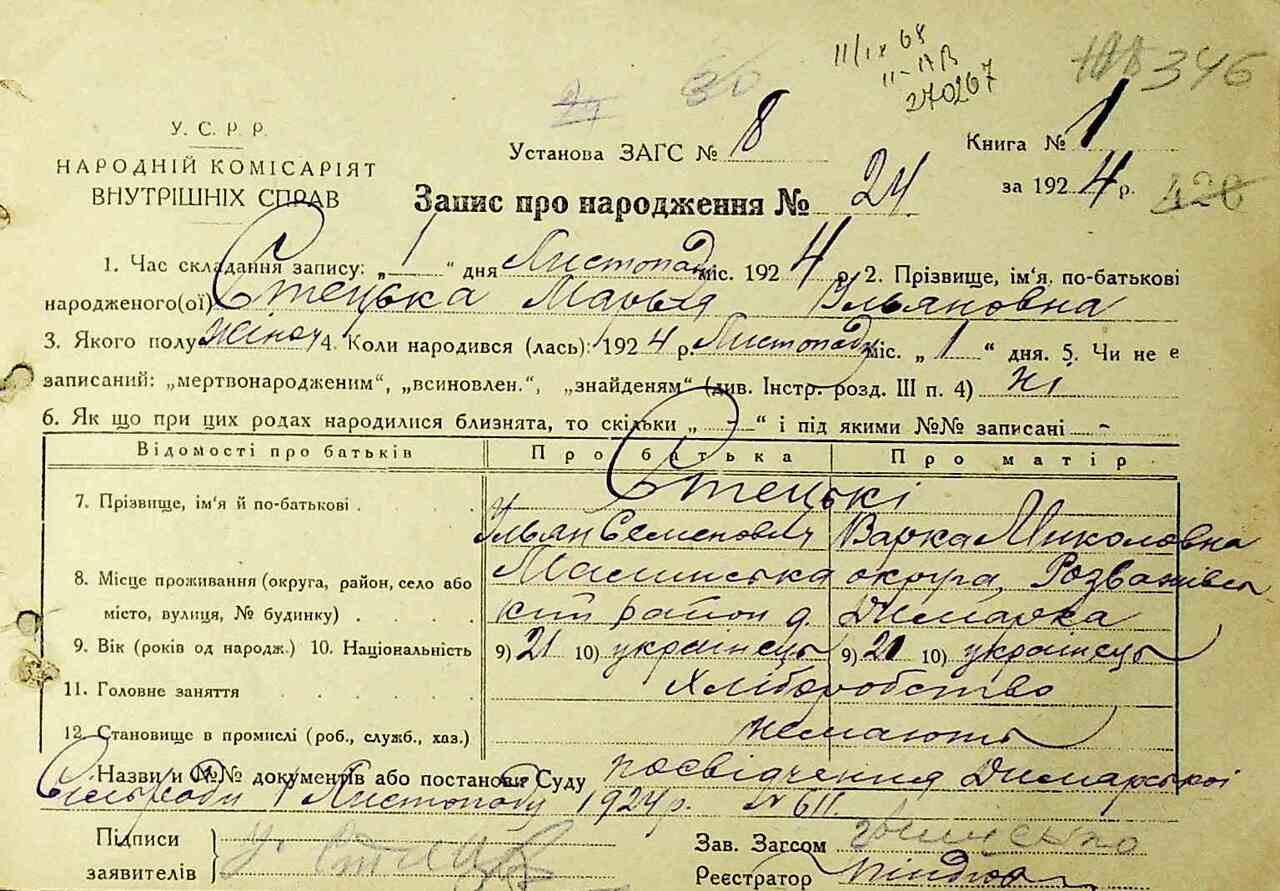 11/IX 68
II-АВ
270267
346
30
У. С. Р. Р.
НАРОДНІЙ КОМІСАРІЯТ
ВНУТРІШНІХ СПРАВ
Установа ЗАГС № 8
Книга № 1
за 1924 р.
Запис про народження № 24
1. Час складання запису: „1“ дня Листопад міс. 1924 р. 2. Прізвище, ім'я, по-батькові
народженого(ої) Стецька Марья Ульяновна
3. Якого полу жіноч 4. Коли народився (лась): 1924 р. Листопаду міс. „1“ дня. 5. Чи не є
записаний: „мертвонародженим“, „всиновлен.“, „знайденям“ (див. Інстр. розд. III п. 4) ні
6. Як що при цих родах народилися близнята, то скільки „-“ і під якими №№ записані -
Відомості про батьків Про батька Про матір
7. Прізвище, ім'я й по-батькові Стецькі
Ульян Семенович Варка Миколовна
8. Місце проживання (округа, район, село або Малинська округа, Розважівсь
місто, вулиця, № будинку) кий район д. Димарка
9. Вік (років од народж.) 10. Національність 9) 21 10) українець 9) 21 10) українець
11. Головне заняття Хліборобство
12. Становище в промислі (роб., служб., хаз.) немають
Назви и №№ документів або постанови Суду посвідчення Димарської
Сільради 1 Листопаду 1924 р. № 611.
Підписи
заявителів У. Стецький
Зав. Загсом
Реєстратор